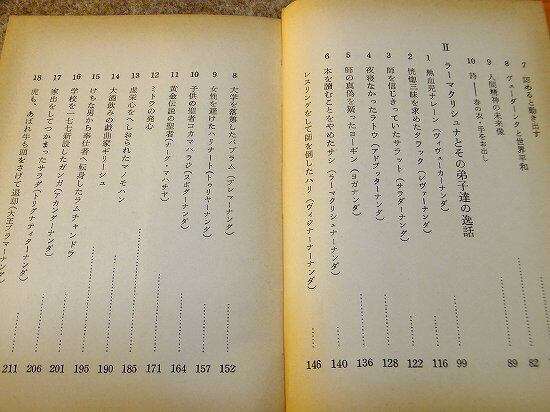 7 認めると動き出す 82
8 ヴェーダーンタと世界平和 89
9 人間精神の未来像
10 詩――幸の友・手をお出し
II ラーマクリシュナとその弟子達の逸話 99
1 熱血児ナレーン(ヴィヴェーカーナンダ) 116
2 恍惚三昧を求めたタラック(シヴァーナンダ) 122
3 師を信じきっていたサラット(サラダーナンダ) 128
4 夜寝なかったラトゥ(アドブッターナンダ) 136
5 師の真偽を疑ったヨーギン(ヨガナンダ) 140
6 本を読むことをやめたサシ(ラーマクリシュナーナンダ) 146
7 レスリングをして師を倒したハリ(ヴィジナーナーナンダ)
8 大学を落第したバブラム(プレマーナンダ) 152
9 女性を避けたハリナート(トゥリヤーナンダ) 157
10 子供の聖者コカマハラジ(スボダーナンダ) 164
11 黄金伝説の聖者(ナーグ・マハサヤ) 171
12 ミトラの発心
13 虚栄心をへしおられたマノモハン 185
14 大酒飲みの戯曲家ギリーシュ 190
15 けちな男から奉仕者へ転身したラムチャンドラ 195
16 学校を一七七新設したガンガ(アカンダーナンダ) 201
17 家出をしてつかまったサラダ(トリグナティターナンダ) 206
18 虎も、あばれ牛も頭をさげて退却(大王ブラマーナンダ) 211